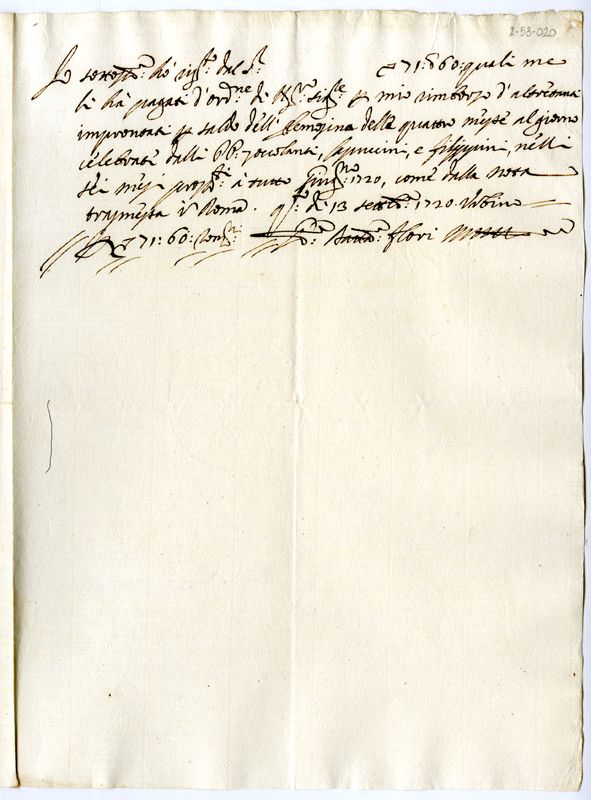 2-53-020
Io sottosto: hò rigto: dal Sr: 71:60: quali me
li hà pagati d'ordne: di per mio rimborzo d'altretanti
improntati per saldo dell'elemosina delle quattro messe al giorno
celebrate dalli PP: Zoccolanti, Cappuccini, e Filippini, nelli
sei mesi prossi: à tutto Giugno: 1720, come dalla nota
trasmessa in Roma. qto: dì 13 settbre: 1720. Urbino
71:60: flori